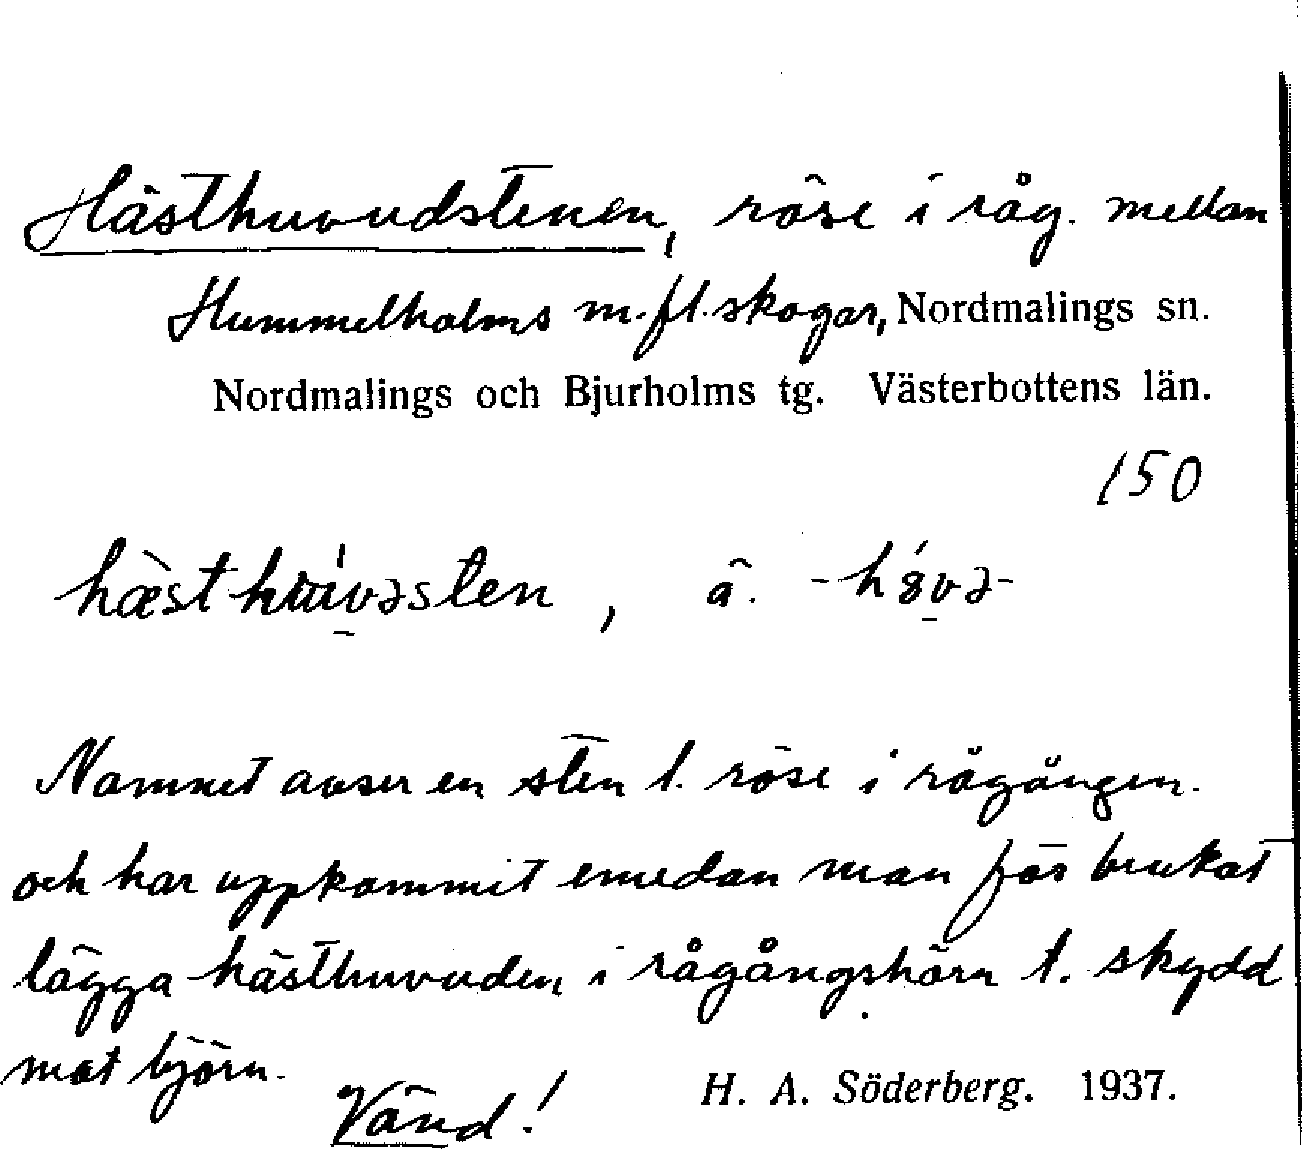 Hästhuvudstenen, röse i råg. mellan
Hummelholms m.fl. skogar, Nordmalings sn.
Nordmalings och Bjurholms tg. Västerbottens län.
150
, ä.
Namnet avser en sten t. röse i rågången.
och har uppkommit emedan man förr brukat
lägga hästhuvuden i rågångshörn t. skydd
mot björn.
Vänd!
H. A. Söderberg. 1937.